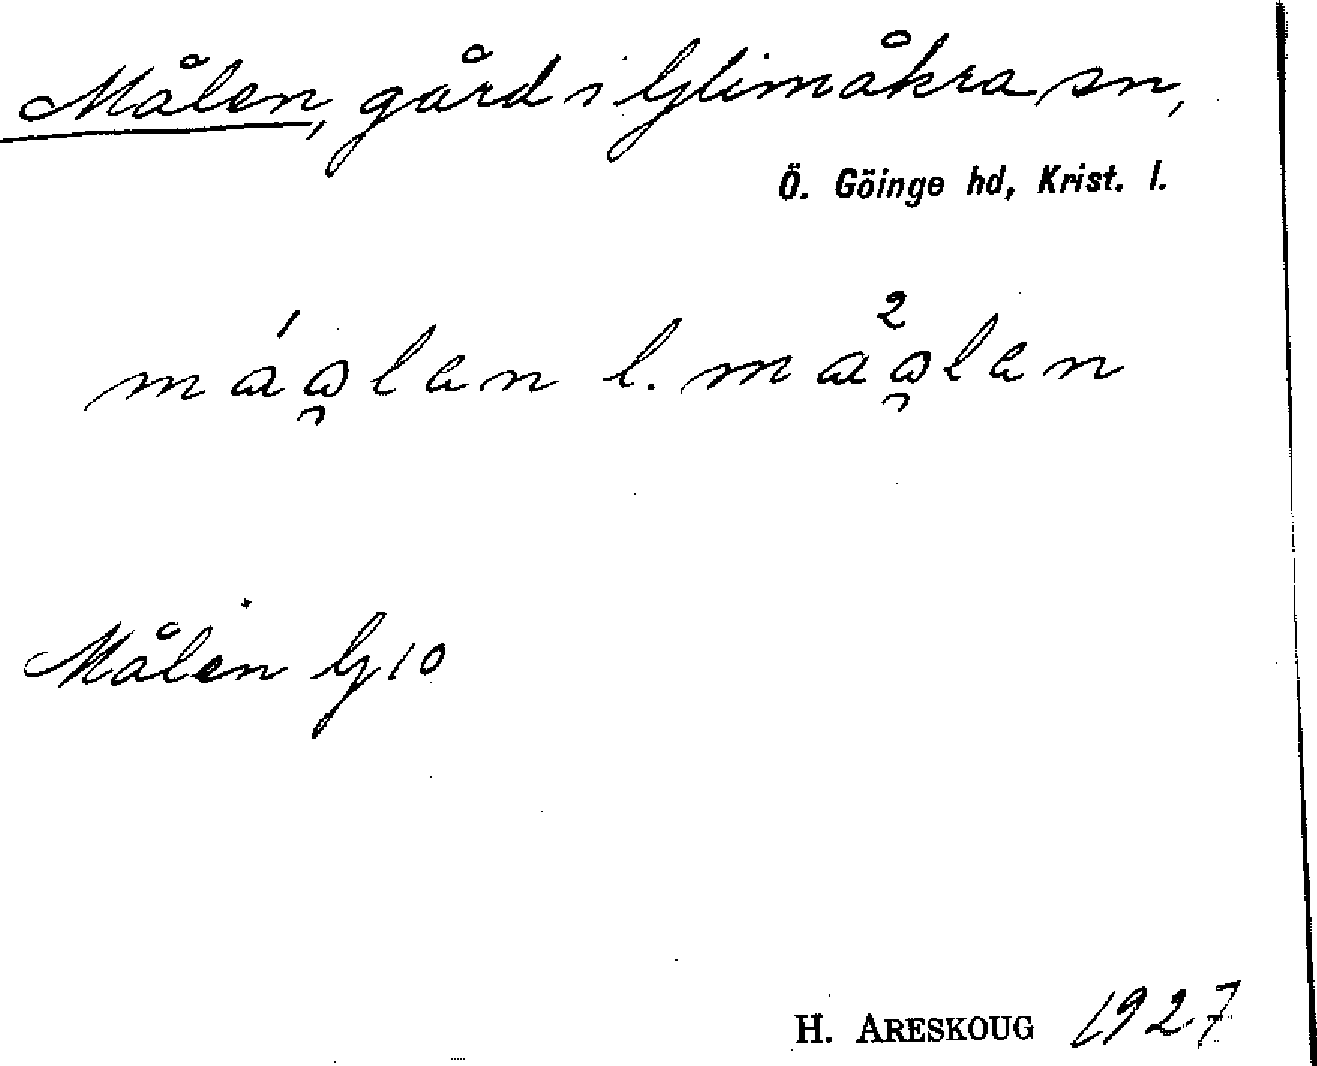 Målen, gård i Glimåkra sn,
Ö. Göinge hd, Krist. l.
l.
Målen G 10
H. ARESKOUG 1927